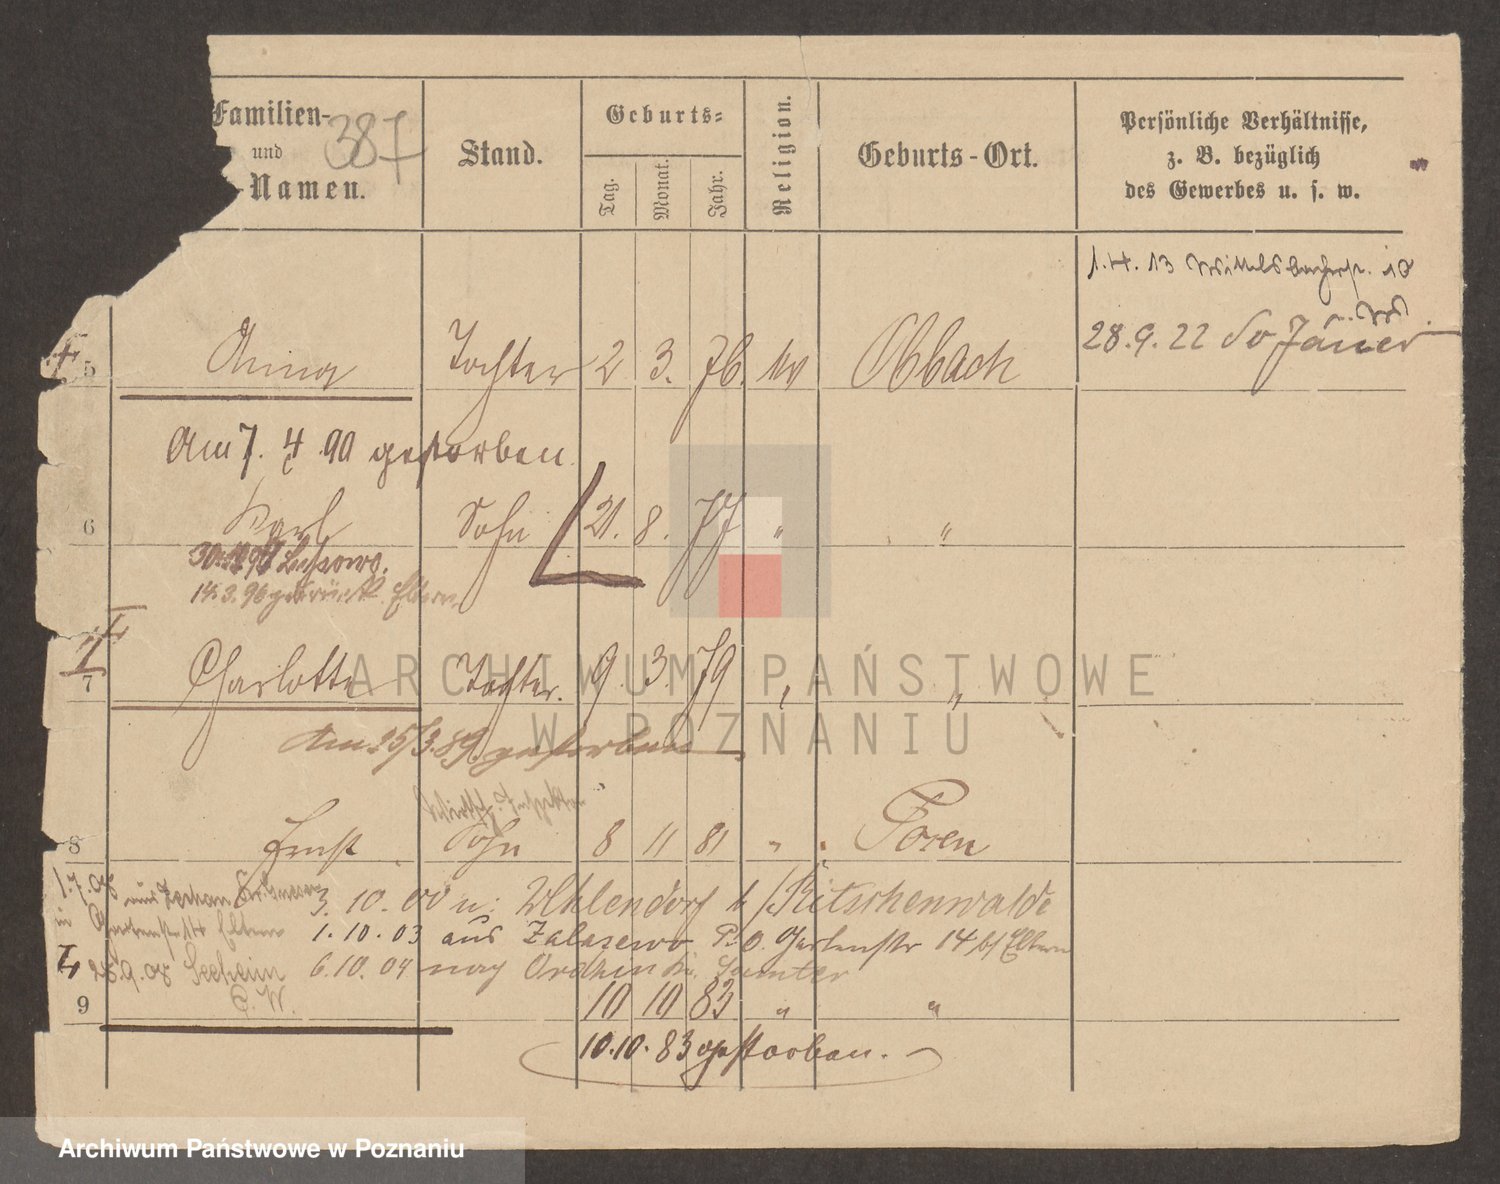 Familien-
und
-Namen.
387
Stand.
Geburts-
Tag.
Monat.
Jahr.
Religion.
Geburts-Ort.
Persönliche Verhältnisse,
z. B. bezüglich
des Gewerbes u. s. w.
1.4.13 10
28.9.22
5 Anna Tochter 2 3. 76. Obbach
Am 7. 4. 90 gestorben.
6 Karl Sohn 21. 8. 77 " "
14.3.96 zurück Eltern
7 Charlotte Tochter. 9. 3. 79 " "
Am 25/3.89. gestorben
8 Ernst Sohn 8 11 81 " Posen
1.7.08 aus
3.10.00 n. Uhlendorf b/Ritschenwalde
in Eltern 1.10.03 aus Zalasewo P. O. Gartenstr 14 b/Eltern
28.9.08 Seeheim 6.10.04 nach Ordzin Kr. Samter
9 10 10 83 " "
10.10.83 gestorben.
ARCHIWUM PAŃSTWOWE
W POZNANIU
Archiwum Państwowe w Poznaniu